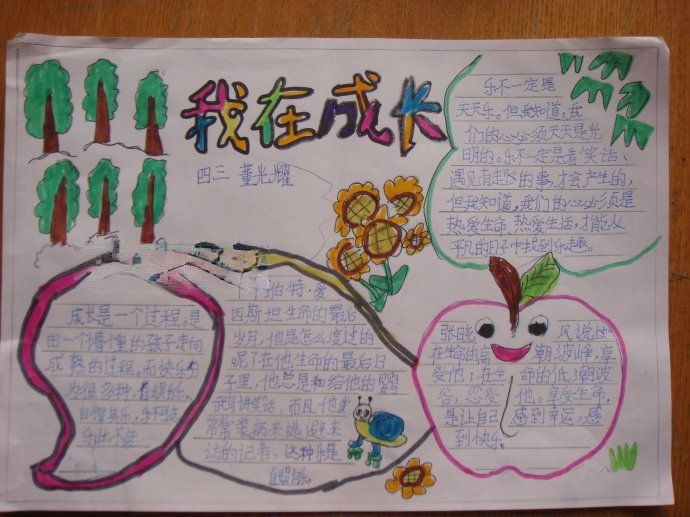 我在成长
四三 董光耀
乐不一定是
天天乐。但我知道,我
们的心必须天天是光
明的。乐不一定是看笑话、
遇见有趣的事,才会产生的,
但我知道,我们的心必须是
热爱生命 热爱生活,才能从
平凡的日子中找到乐趣。
成长是一个过程。是
由一个懵懂的孩子走向
成熟的过程,而快乐
分很多种,有娱乐、
自得其乐、乐不
乐此不疲……
伯特·爱
因斯坦生命的最后
岁月,他是怎么度过的
呢?在他生命的最后日
子里,他总是和给他的鹦
鹉讲笑话,而且他
常常装病来逃避来
访的记者,这种乐是
自娱自乐。
张晓风说过
在生命的高潮波峰,享
受他;在生命的低潮波
谷,忍受他。享受生命,
是让自己感到幸运,感
到快乐。